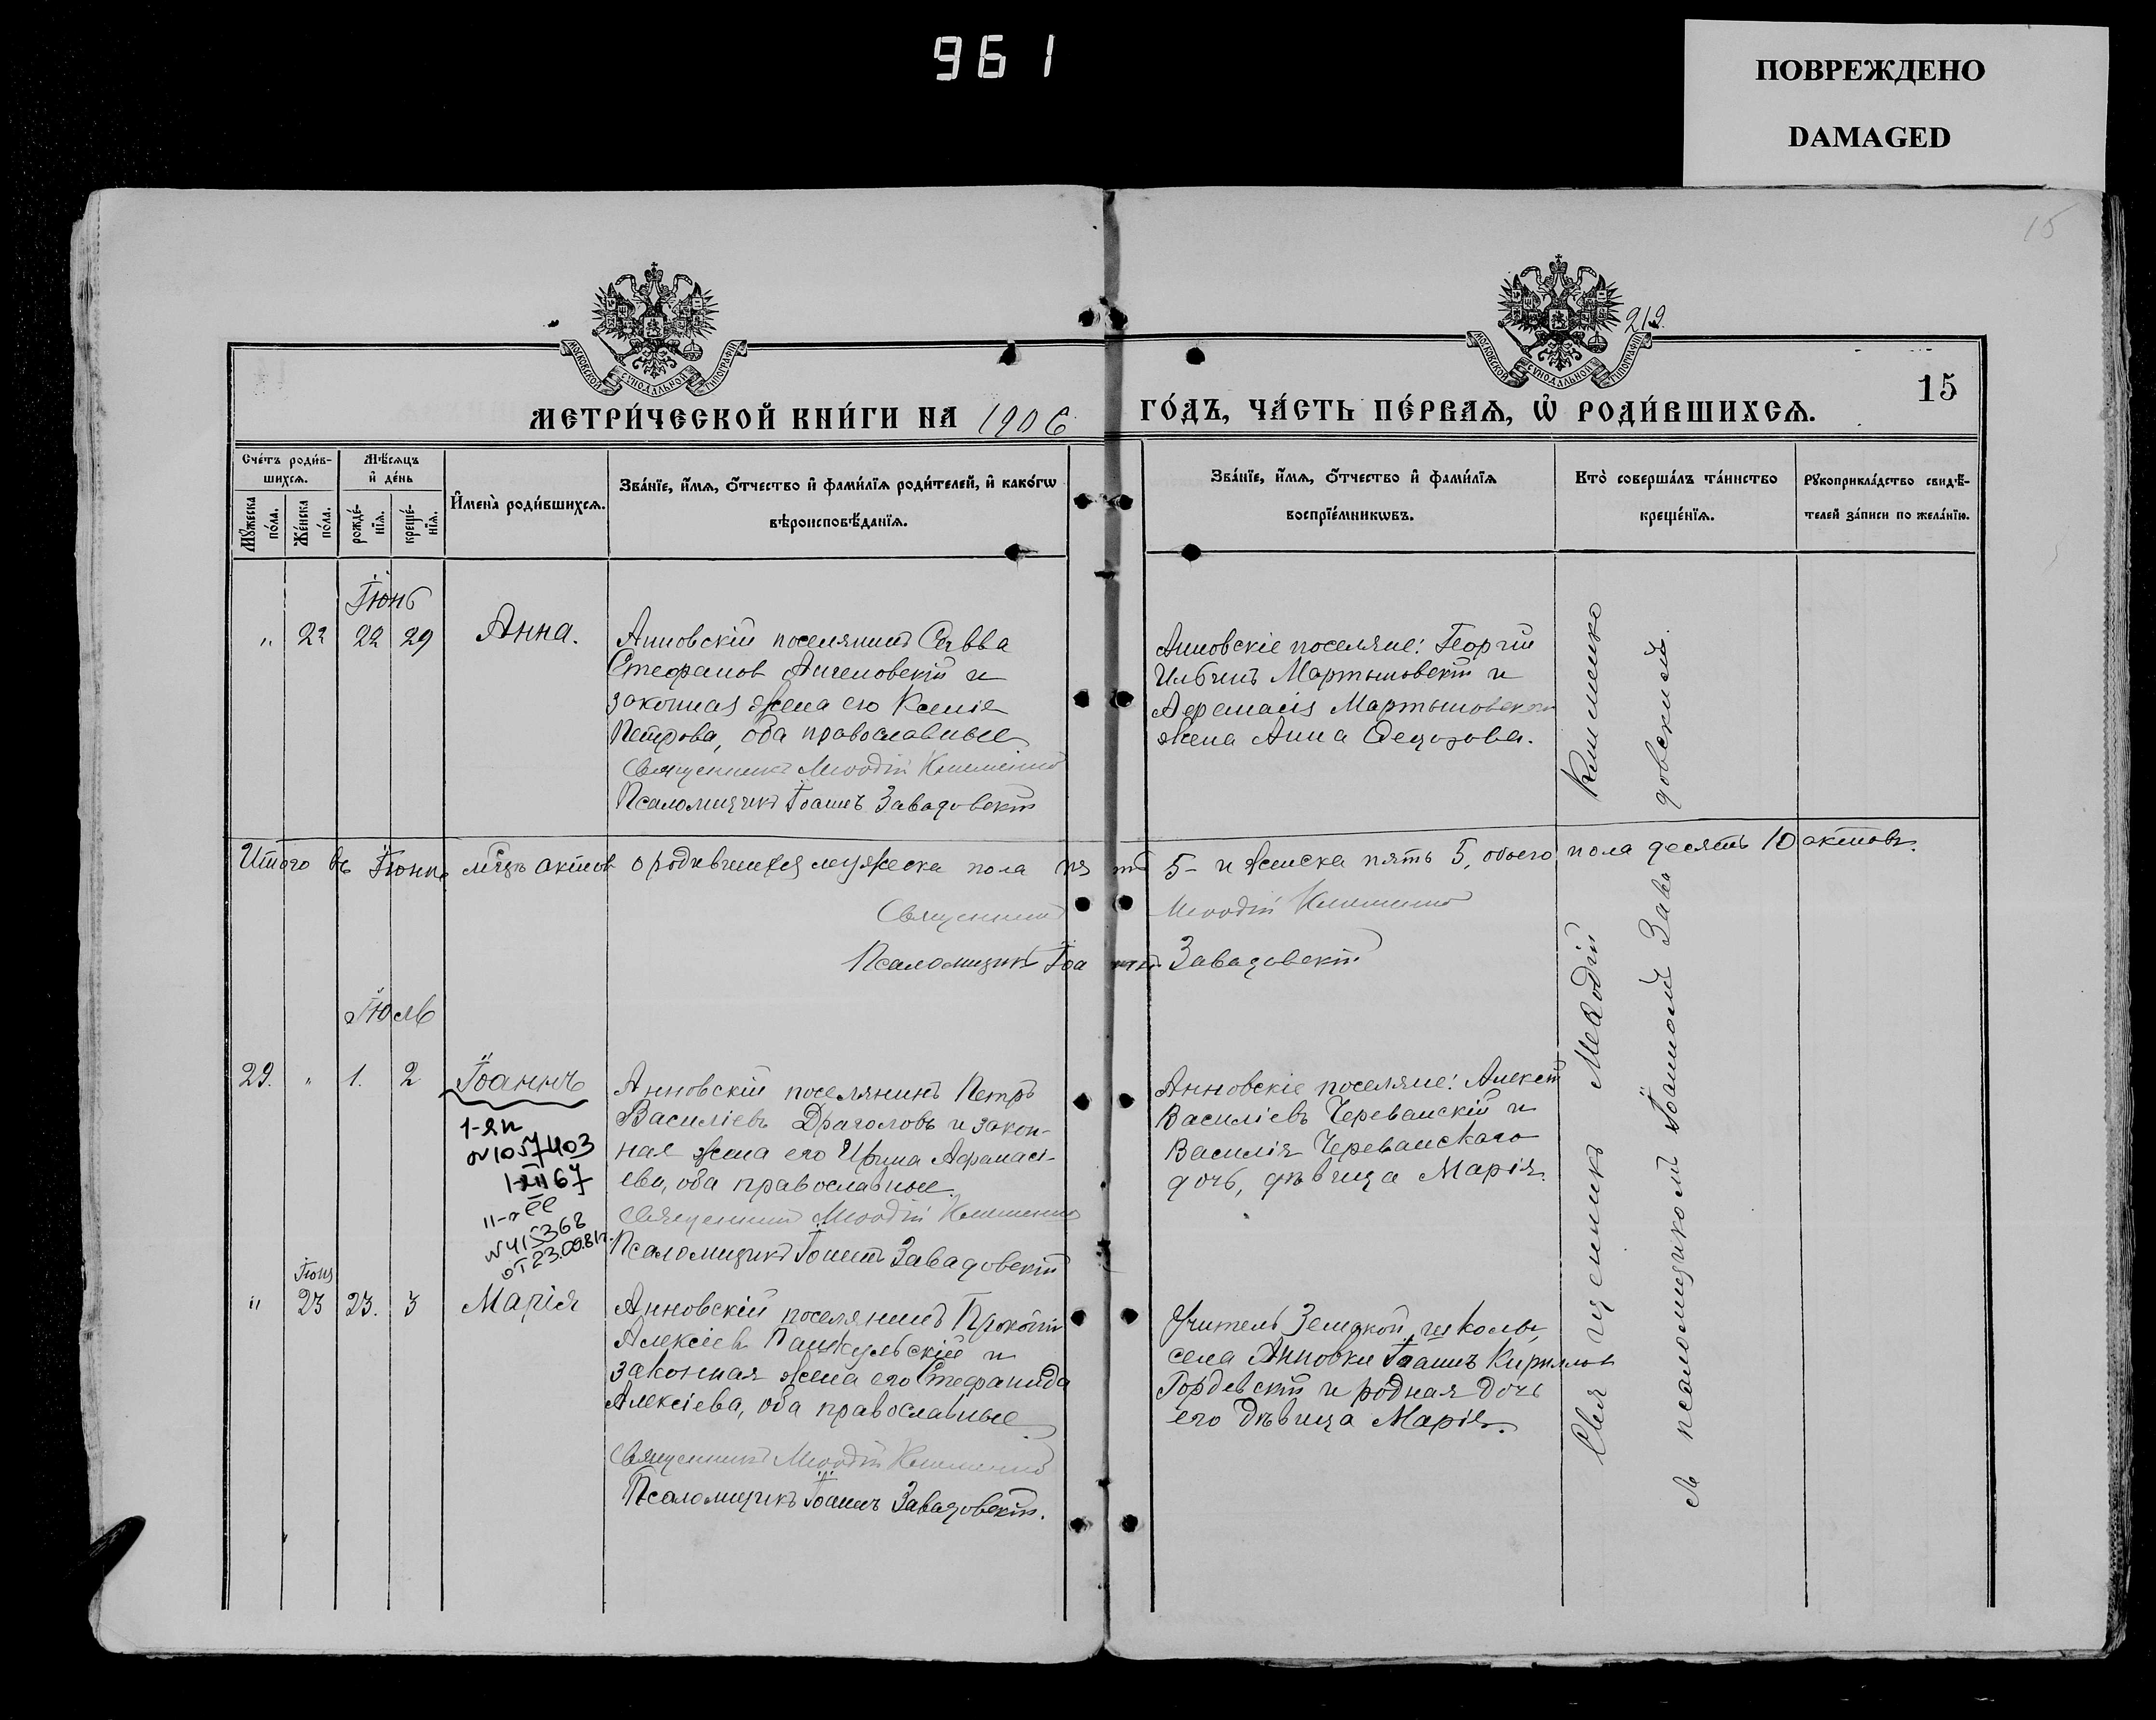 961
ПОВРЕЖДЕНО
DAMAGED
15
219.
МОСКОВСКОЙ СѴНОДАЛЬНОЙ ТИПОГРАФІИ
МОСКОВСКОЙ СѴНОДАЛЬНОЙ ТИПОГРАФІИ
15
МЕТРИ́ЧЕСКОЙ КНИ́ГИ НА 1906 ГО́ДЪ, ЧА́СТЬ ПЕ́РВАѦ, Ѡ҆ РОДИ́ВШИХСѦ.
Сче́тъ роди́в-
шихсѧ.
Мѣ́сѧцъ
и҆ де́нь
Мꙋ́жеска
по́ла.
Же́нска
по́ла.
рожде́-
нїѧ.
креще́-
нїѧ.
И҆мена̀ роди́вшихсѧ.
Зва́нїе, и҆́мѧ, ѻ҆́тчество и҆ фами́лїѧ роди́телей, и҆ како́гѡ
вѣроисповѣ́данїѧ.
Зва́нїе, и҆́мѧ, ѻ҆́тчество и҆ фами́лїѧ
воспрїе́мникѡвъ.
Кто̀ соверша́лъ та́инство
креще́нїѧ.
Рꙋкоприкла́дство свидѣ́-
телей за́писи по жела́нїю.
Іюнь
„ 22 22 29 Анна.
Анновскій поселянинъ Савва
Стефановъ Ангеловскій и
законная жена его Ксенія
Петрова, оба православные
Священникъ Меѳодій Клименко
Псаломщикъ Іоаннъ Завадовскій
Анновскіе поселяне: Георгій
Ильинъ Мартыновскій и
Афанасія Мартыновскаго
жена Анна Федорова.
Итого въ Іюнѣ мцѣ актовъ о родившихся мужеска пола пять 5 – и женска пять 5, обоего пола десять 10 актовъ.
Священникъ Меѳодій Клименко
Псаломщикъ Іоаннъ Завадовскій
Іюль
29. „ 1. 2 Іоаннъ
1-яп
№1057403
1-XII 67
II-а ЕЕ
№415368
от 23.09.81г.
Анновскій поселянинъ Петръ
Василіевъ Драголовъ и закон-
ная жена его Ирина Афанасі-
ева, оба православные.
Священникъ Меѳодій Клименко
Псаломщикъ Іоаннъ Завадовскій
Анновскіе поселяне: Алексій
Василіевъ Череванскій и
Василія Череванскаго
дочь, дѣвица Марія.
Іюня
„ 23 23. 3 Марія
Анновскій поселянинъ Прокопій
Алексіевъ Панкульскій и
законная жена его Стефанида
Алексіева, оба православные.
Священникъ Меѳодій Клименко
Псаломщикъ Іоаннъ Завадовскій.
Учитель Земской школы,
села Анновки Іоаннъ Кириловъ
Гордевскій и родная дочь
его дѣвица Марія.
Священникъ Меѳодій Клименко
съ псаломщикомъ Іоанномъ Завадовскимъ.